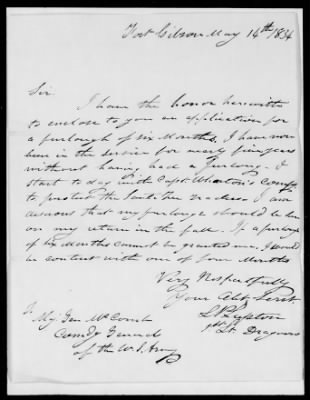 Fort Gibson May 14th 1834
Sir.
I have the honor herewith
to enclose to you an application for
a furlough of six Months. I have now
been in the service for nearly five years
without having had a furlong. I
start to day with Capt. Wharton's Compy
to protect the Santa Fee traders. I am
desirous that my furlough should be
on my return in the fall. If a furlough
of six Months cannot be granted me, I would
be content with one of four Months
Very Respectfully
Your Obt Servt
1st Lt. Dragoons
To Maj Gen McComb
Comdg General
of the U. S. Army